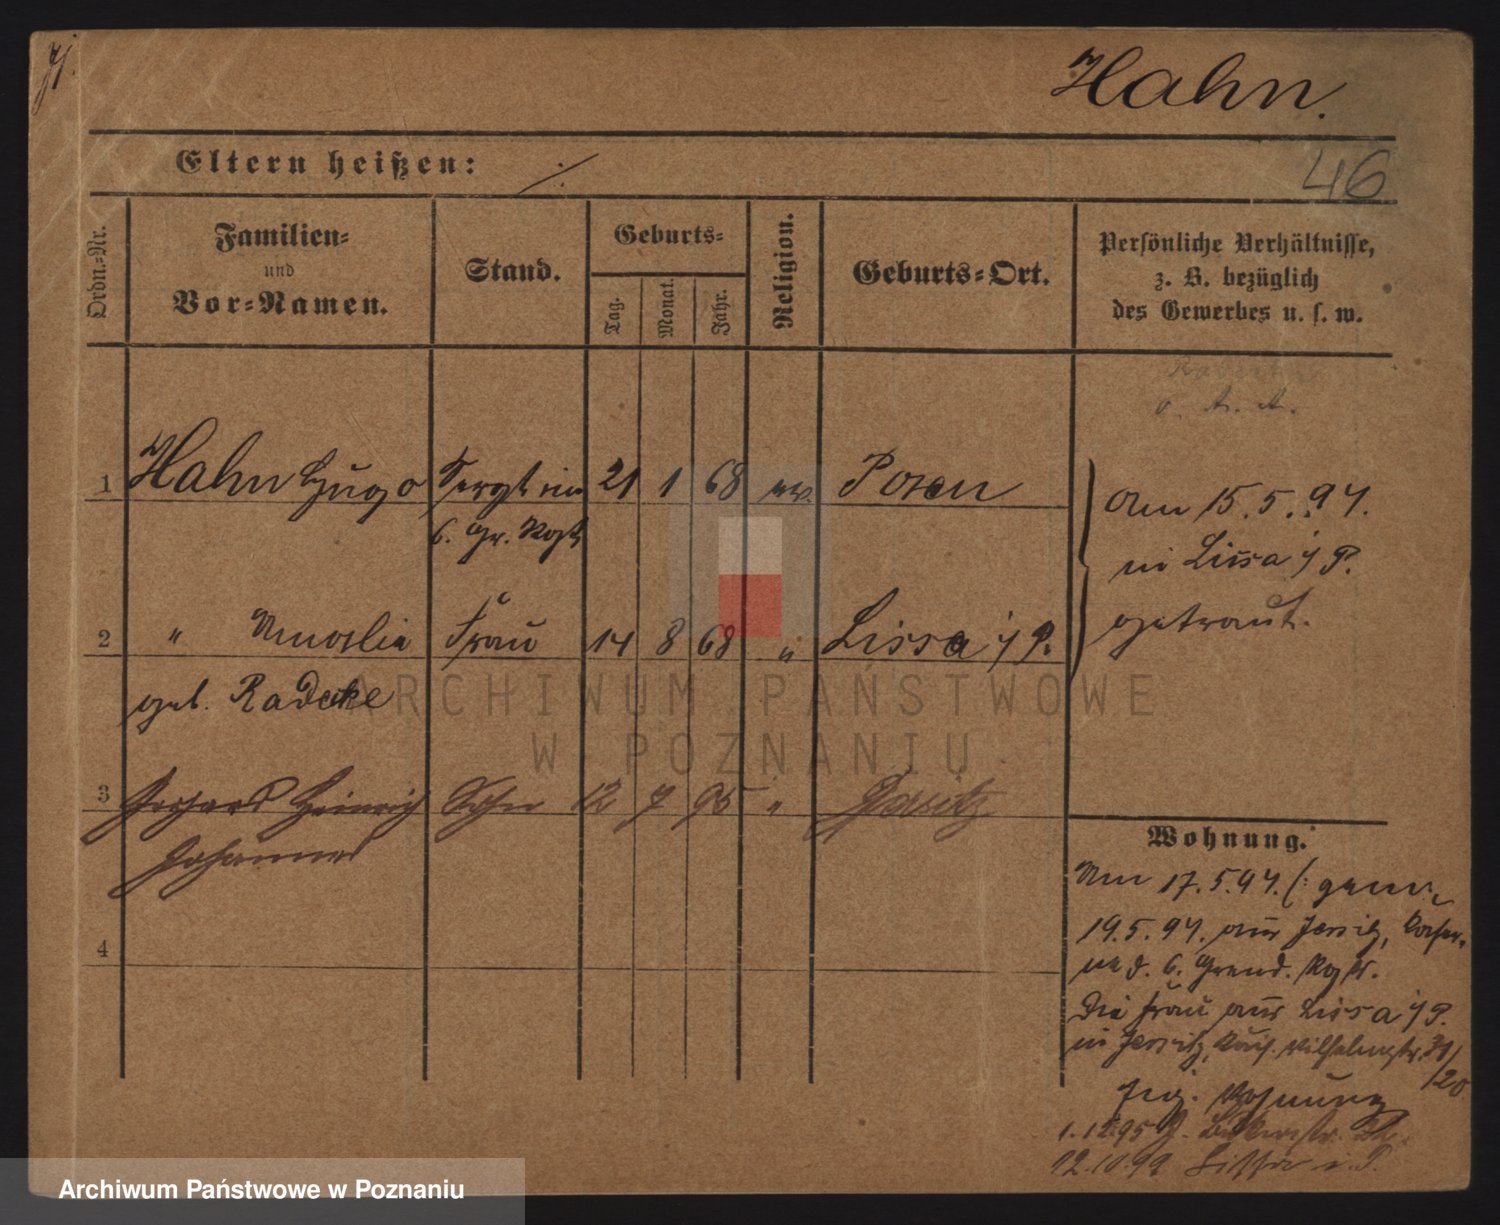 J.
Hahn.
Eltern heißen: ./.
46
Ordn.=Nr.
Familien=
und
Vor=Namen.
Stand.
Geburts=
Tag.
Monat.
Jahr.
Religion.
Geburts=Ort.
Persönliche Verhältnisse,
z. B. bezüglich
des Gewerbes u. s. w.
1 Hahn Hugo Sergt im 21 1 68 ev. Posen
6. Gr. Rgt
Am 15.5.94.
in Lissa i/P.
getraut.
2 " Amalie Frau 14 8 68 " Lissa i/P.
geb. Radecke
3 Gerhard Heinrich Sohn 12 7 95 " Jersitz
Johannes
4
Wohnung.
Am 17.5.94. (: gem:
19.5.94. aus Jersitz, Caser-
ne d. 6. Grend. Rgts.
Die Frau aus Lissa i/P.
in Jersitz, Kais. Wilhelmstr.
/20
Wohnung
1.12.95 J.
12.10.99 i. P.
ARCHIWUM PAŃSTWOWE
W POZNANIU
Archiwum Państwowe w Poznaniu